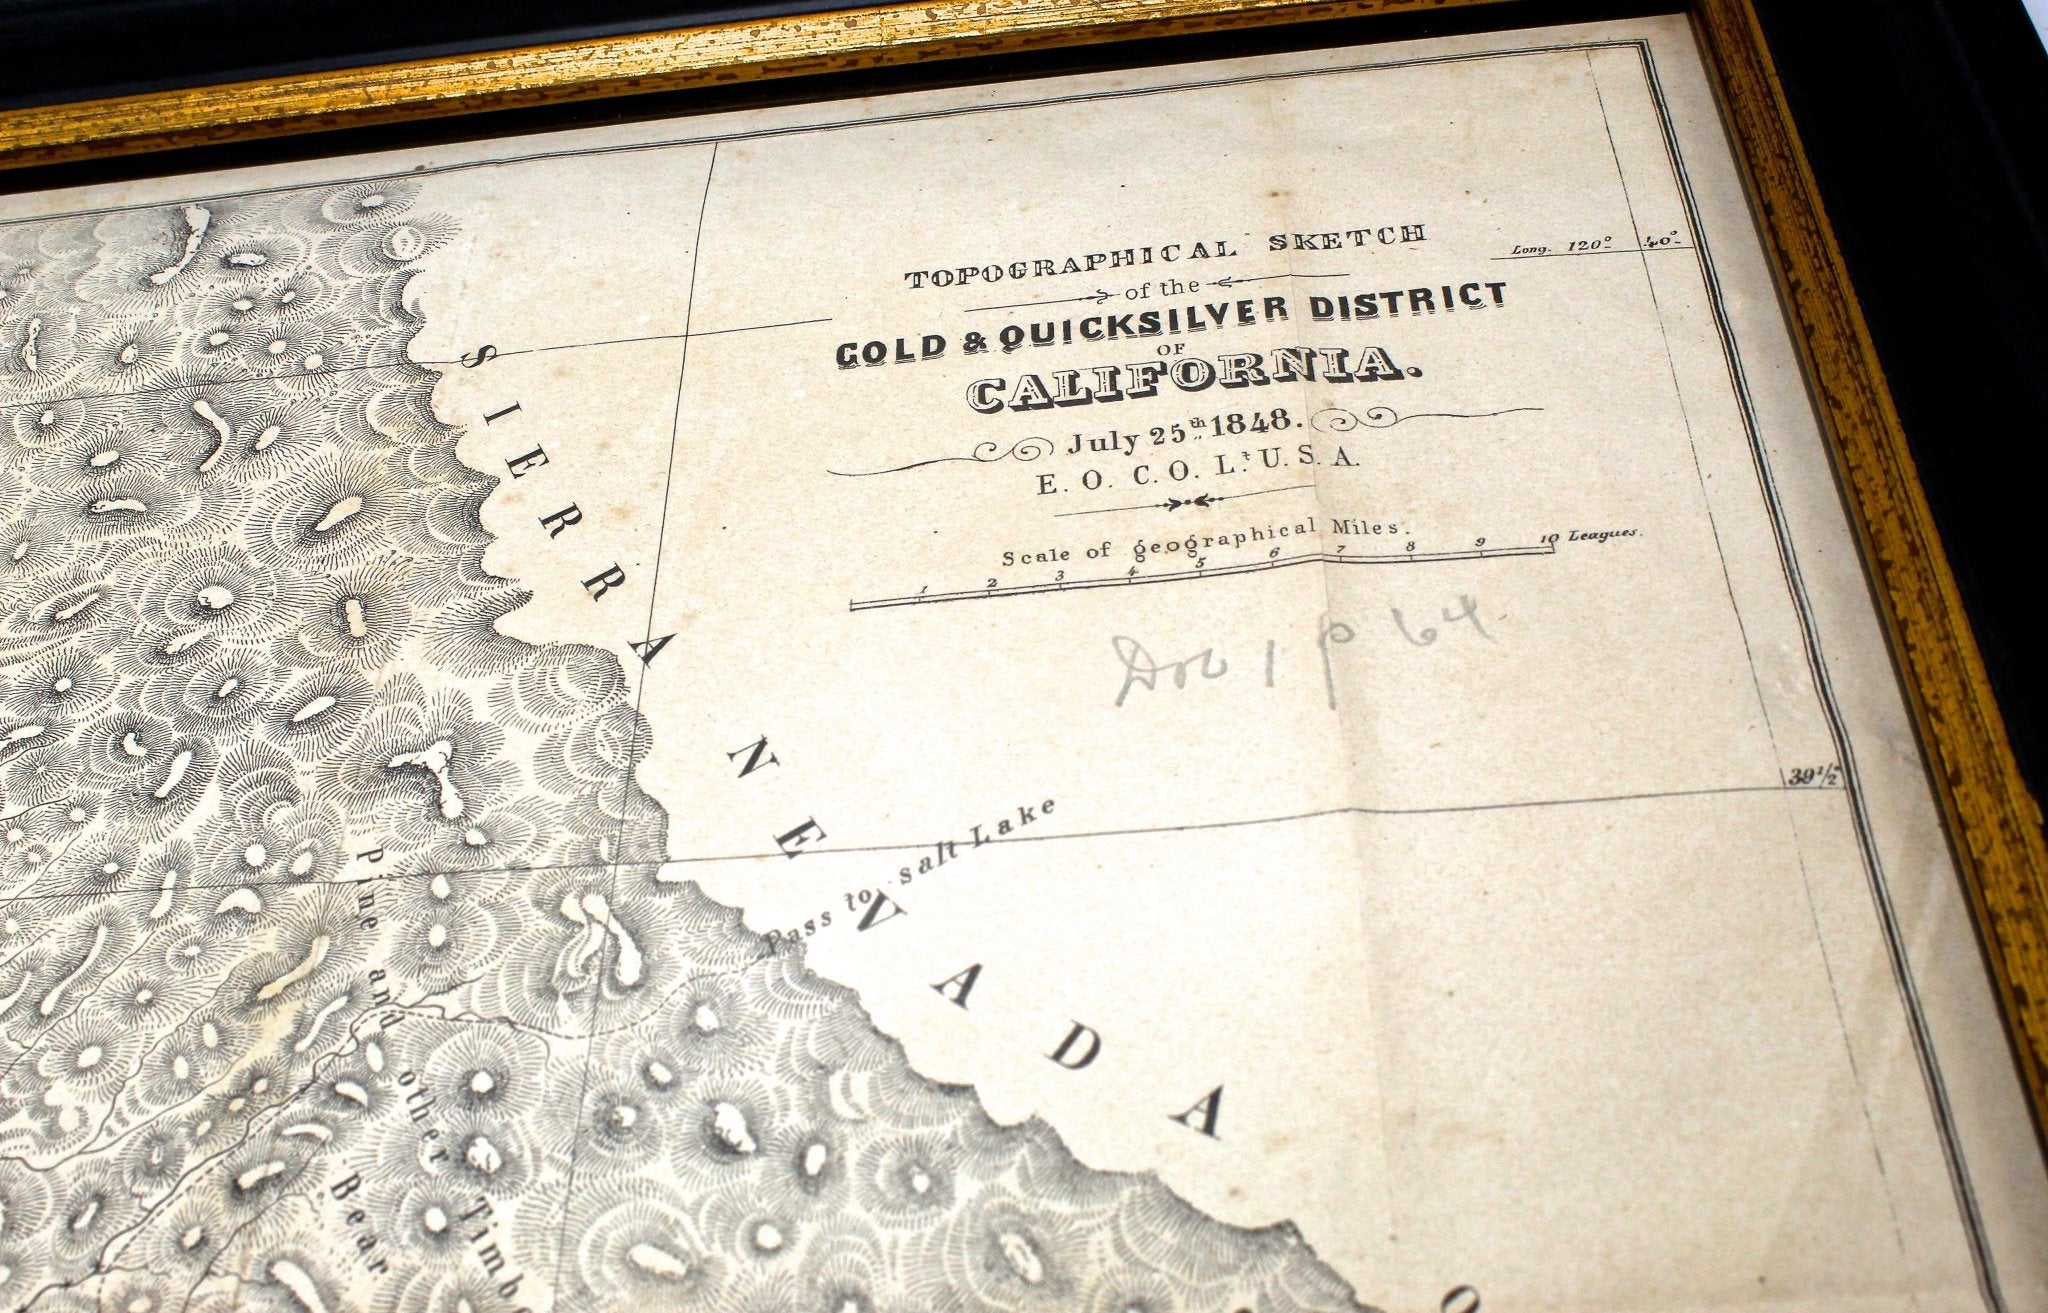 TOPOGRAPHICAL SKETCH
of the
GOLD & QUICKSILVER DISTRICT
OF
CALIFORNIA.
July 25th 1848.
E. O. C. O. Lt. U. S. A.
Scale of geographical Miles.
1 2 3 4 5 6 7 8 9 10 Leagues.
Long. 120° 40°
Doc 1 p 64
39 1/2°
SIERRA NEVADA
Pass to salt Lake
Pine and other Timbe
Bear
O